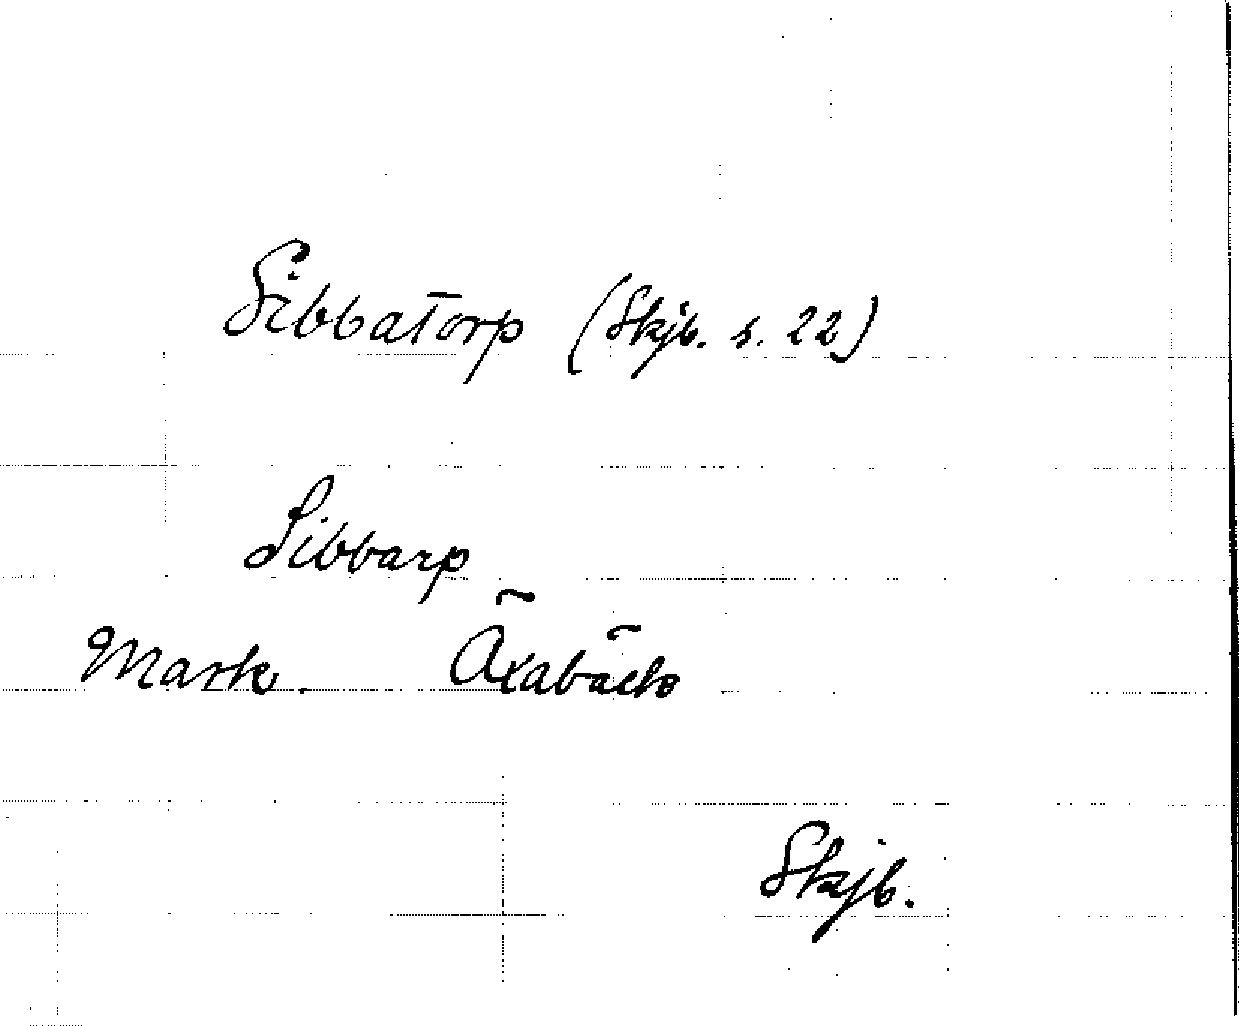 Sibbatorp (Skjb. s. 22)
Sibbarp
Mark. Äxabäck
Skjb.